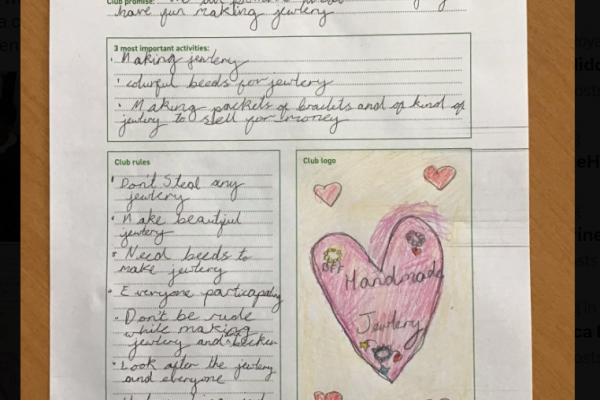 Club promise:
have fun making jewlery
3 most important activities:
· Making jewlery
· colurful beeds for jewlery
· Making packets of braclets and of kind of
jewlery to stell for money
Club rules
· Don't Steal any
jewlery
· Make beautiful
jewlery
· Need beeds to
make jewlery
· Everyone participating
· Don't be rude
while making
jewlery and
· Look after the jewlery
and everyone
Club logo
BFF
Handmade
Jewlery